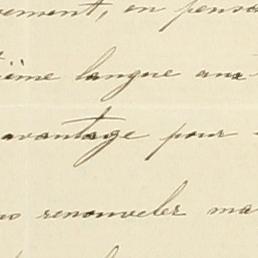 vement, en pens
ième langue aux
avantage pour
renouveler ma